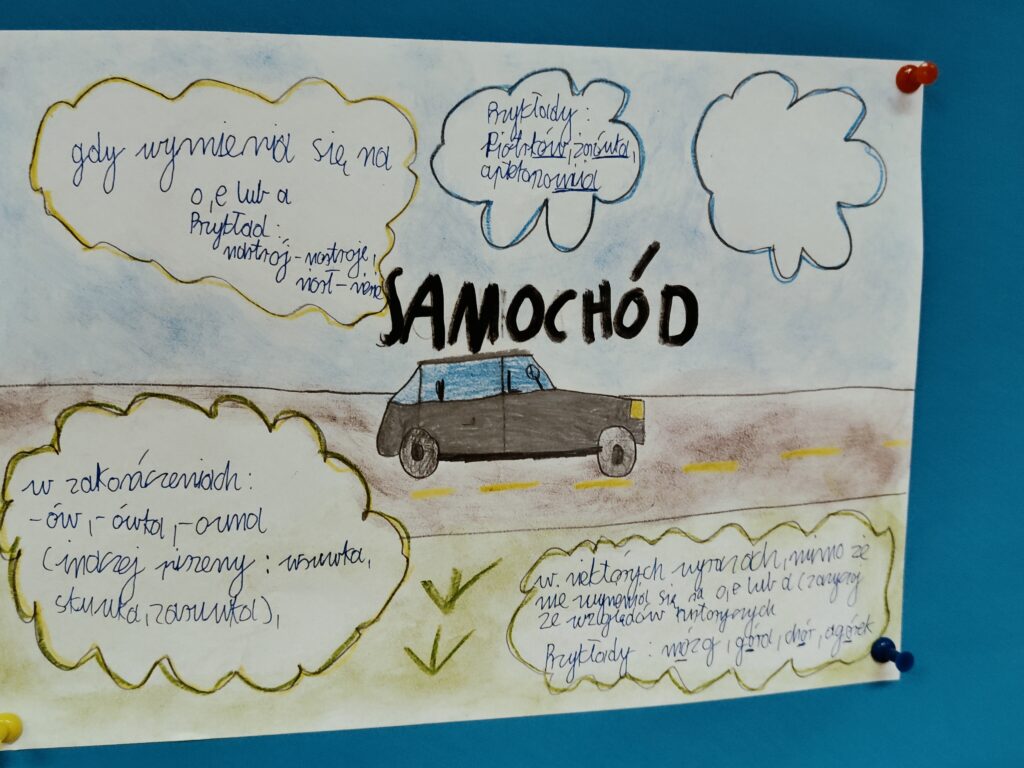 gdy wymienia się na
o, e lub a
Przykład:
nastrój - nastroje,
niósł - niosę
Przykłady:
Piotrków, żarówka,
SAMOCHÓD
w zakończeniach:
-ów, -ówka, -ówna
(inaczej piszemy: wsuwka,
skuwka, zasuwka),
w niektórych wyrazach, mimo że
nie wymienia się na o, e lub a (zazwyczaj
ze względów historycznych
Przykłady: mózg, góra, chór, ogórek